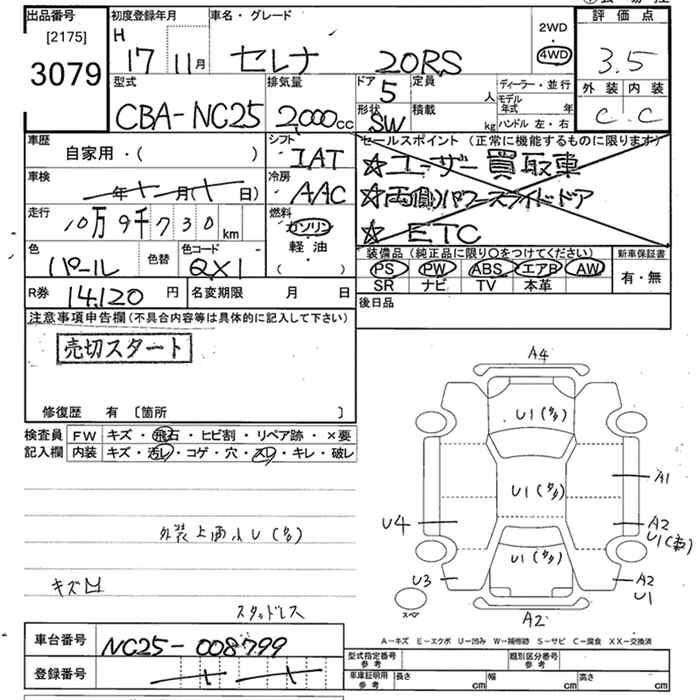 出品番号 初度登録年月 車名・グレード 2WD・4WD 評価点
[2175] 3079
H 17 11月 セレナ 20RS
3.5
外装 内装
C C
型式 排気量 ドア 定員 ディーラー・並行
CBA-NC25 2,000cc 5 人 モデル年式 年
形状 積載 ハンドル 左・右
SW kg
車歴 シフト セールスポイント(正常に機能するものに限ります)
自家用・( ) IAT ☆ユーザー買取車
車検 冷房 ☆両側パワースライドドア
年 月( 日) AAC ☆ETC
走行 燃料
10万9千730km ガソリン
軽油
( )
色 色替 色コード
パール QX1
装備品(純正品に限り○をつけてください) 新車保証書
PS PW ABS エアB AW 有・無
SR ナビ TV 本革
R券 14,120円 名変期限 月 日 後日品
注意事項申告欄(不具合内容等は具体的に記入して下さい)
売切スタート
修復歴 有 〔箇所 〕
検査員記入欄
FW キズ・飛石・ヒビ割・リペア跡・×要
内装 キズ・汚レ・コゲ・穴・スレ・キレ・破レ
外装上面小U(多)
キズ
スタッドレス
A4
U1(多)
U1(多)
A1
U4
A2
U1
U1(多)
U3
A2
U1
スペア
A2
A-キズ E-エクボ U-凹み W-補修跡 S-サビ C-腐食 XX-交換済
車台番号 NC25-008799
登録番号
型式指定番号 参考 類別区分番号 参考
車庫証明用 参考 長さ cm 幅 cm 高さ cm